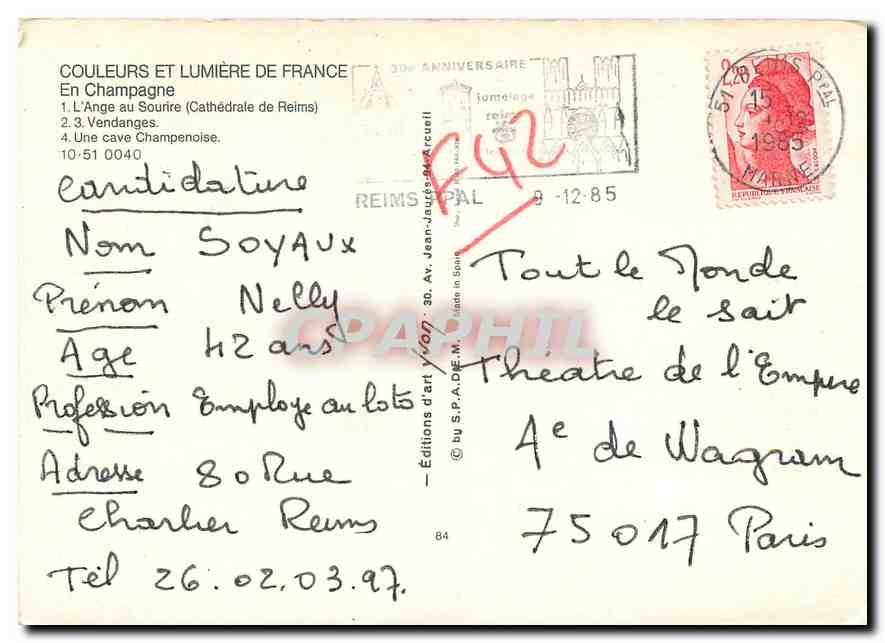 COULEURS ET LUMIÈRE DE FRANCE
En Champagne
1. L'Ange au Sourire (Cathédrale de Reims)
2.3. Vendanges.
4. Une cave Champenoise.
10-51 0040
Candidature
Nom SOYAUX
Prénom Nelly
Age 42 ans
Profession Employe au loto
Adresse 80 Rue
Charlier Reims
Tél 26.02.03.97.
— Éditions d'art Yvon · 30, Av. Jean-Jaurès-94-Arcueil
© by S.P.A.D.E.M. Made in Spain
84
30e ANNIVERSAIRE
jumelage
reims
REIMS PPAL 9-12-85
F42
2,20
REPUBLIQUE FRANÇAISE
51 REIMS PPAL
15
9-12
1985
MARNE
Tout le Monde
le sait
Théatre de l'Empire
Ae de Wagram
75017 Paris
CPAPHIL